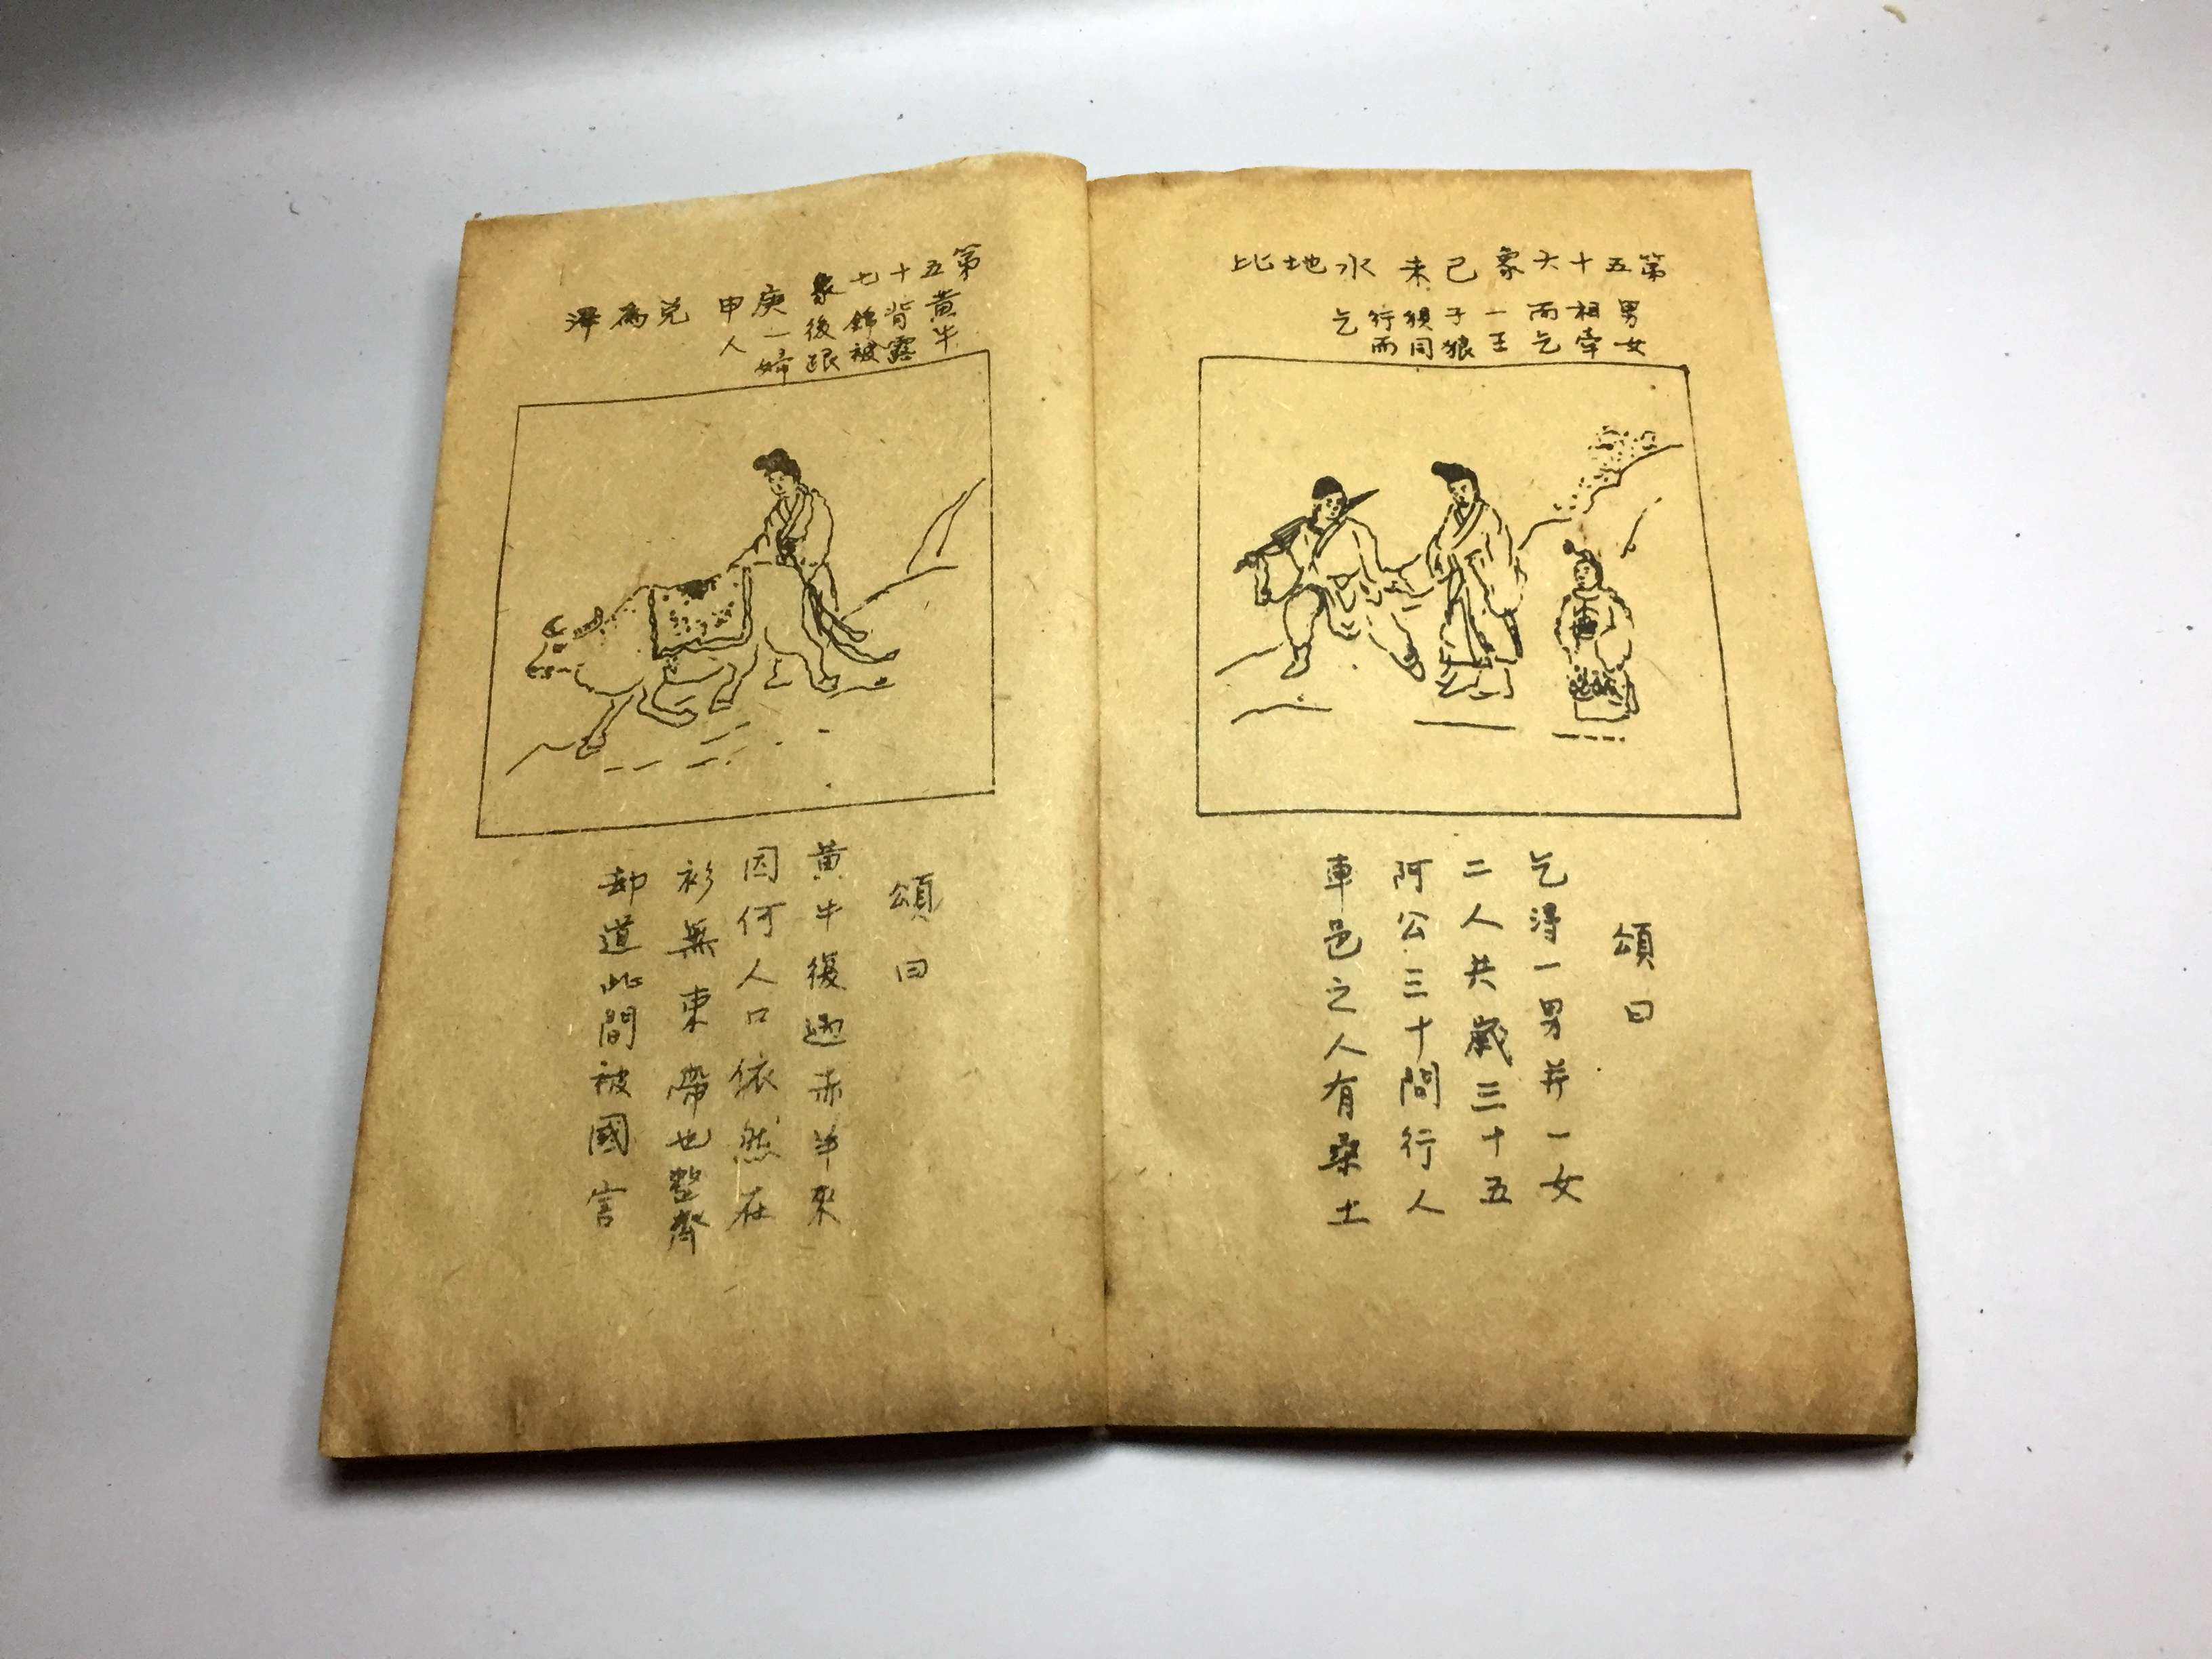 第五十六象己未水地比
男女相牽而乞一王子狼狽同行而乞
頌曰
乞得一男并一女
二人共歲三十五
阿公三十問行人
車邑之人有土
第五十七象庚申兌為澤
黃牛背露錦被後跟一婦人
頌曰
黃牛復赤羊來
因何人口依然在
衫無束帶也整齊
却道此間被國害